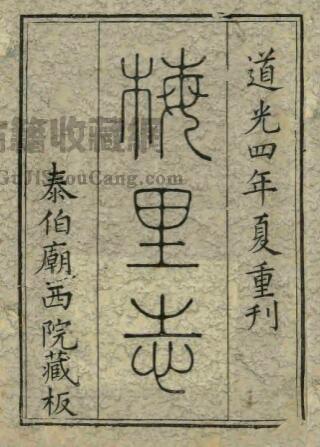 道光四年夏重刊
梅里志
泰伯廟西院藏板
籍收藏網
GuJiShouCang.com